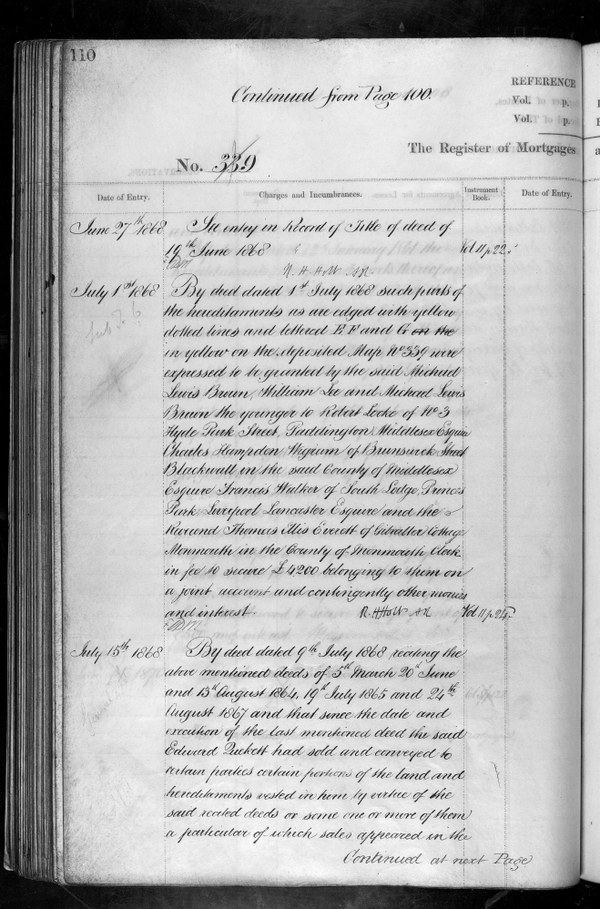 110
Continued from Page 100.
REFERENCE
Vol. p.
Vol. p.
The Register of Mortgages
No. 339
Date of Entry.
Charges and Incumbrances.
Instrument Book.
Date of Entry.
June 27th 1868 See entry in Record of Title of deed of
19th June 1868 Vol 11 p. 22.
R. H. Holt
July 1st 1868 By deed dated 1st July 1868 such parts of
the hereditaments as are edged with yellow
dotted lines and lettered E F and G on the
in yellow on the deposited Map No 339 were
expressed to be granted by the said Michael
Lewis Brown, William Lee and Michael Lewis
Brown the younger to Robert Locke of No 3
Hyde Park Street, Paddington Middlesex Esquire
Charles Hampden Wigram of Brunswick Street
Blackwall in the said County of Middlesex
Esquire Francis Walker of South Lodge, Princes
Park Liverpool Lancaster Esquire and the
Reverend Thomas Ellis Everett of Gibraltar Cottage
Monmouth in the County of Monmouth Clerk
in fee to secure £4200 belonging to them on
a joint account and contingently other monies
and interest. R. H. Holt Vol 11 p. 24.
July 15th 1868 By deed dated 9th July 1868, reciting the
above mentioned deeds of 5th March 20th June
and 13th August 1864, 19th July 1865 and 24th
August 1867 and that since the date and
execution of the last mentioned deed the said
Edward Puckett had sold and conveyed to
certain parties certain portions of the land and
hereditaments vested in him by virtue of the
said recited deeds or some one or more of them
a particular of which sales appeared in the
Continued at next Page